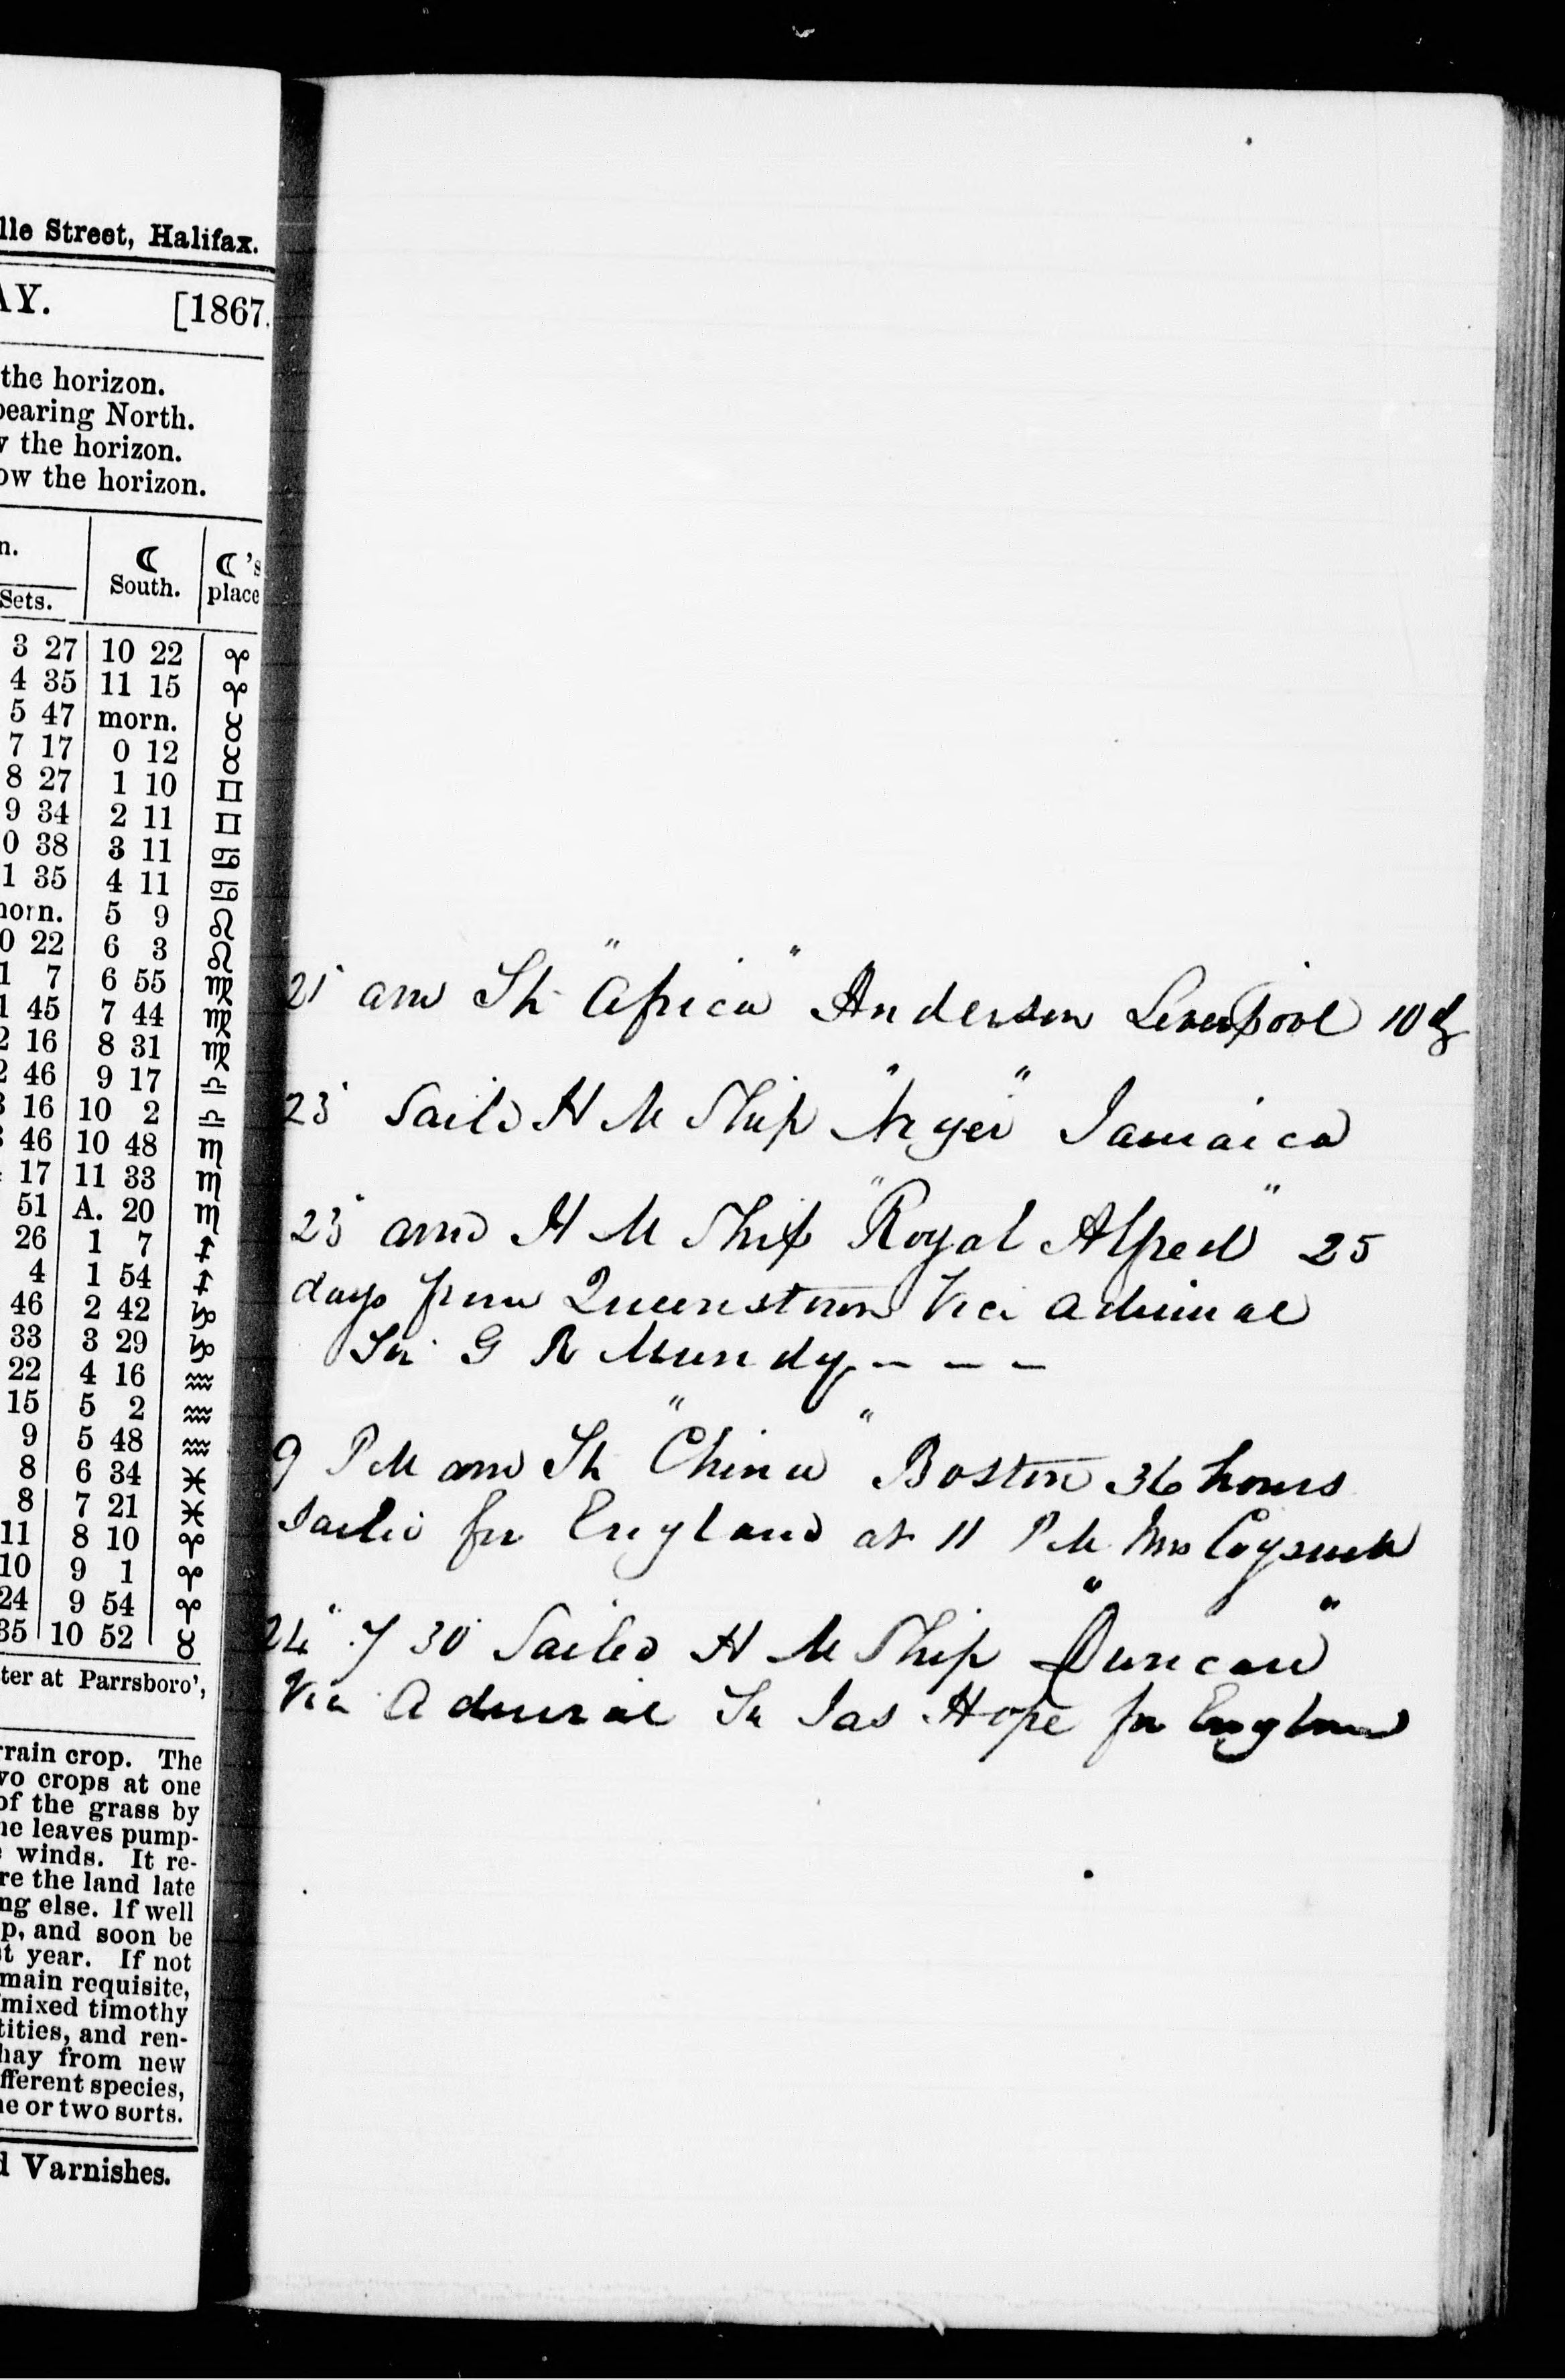 lle Street, Halifax.
AY. [1867.
the horizon.
bearing North.
w the horizon.
ow the horizon.
n. ☾ South. ☾'s place
Sets.
3 27 10 22 ♈
4 35 11 15 ♈
5 47 morn. ♉
7 17 0 12 ♉
8 27 1 10 ♊
9 34 2 11 ♊
0 38 3 11 ♋
1 35 4 11 ♋
norn. 5 9 ♌
0 22 6 3 ♌
1 7 6 55 ♍
1 45 7 44 ♍
2 16 8 31 ♍
2 46 9 17 ♎
3 16 10 2 ♎
3 46 10 48 ♏
17 11 33 ♏
51 A. 20 ♏
26 1 7 ♐
4 1 54 ♐
46 2 42 ♑
33 3 29 ♑
22 4 16 ♒
15 5 2 ♒
9 5 48 ♒
8 6 34 ♓
8 7 21 ♓
11 8 10 ♈
10 9 1 ♈
24 9 54 ♈
35 10 52 ♉
ter at Parrsboro',
rrain crop. The
vo crops at one
of the grass by
he leaves pump-
e winds. It re-
re the land late
ng else. If well
p, and soon be
st year. If not
main requisite,
mixed timothy
tities, and ren-
hay from new
fferent species,
ne or two sorts.
d Varnishes.
21 arr St "Africa" Anderson Liverpool 10 d
23 Saild H M Ship Jamaica
23 arrd H M Ship "Royal Alfred" 25
days from Queenstown Vice Admiral
Sir G R Mundy - - -
9 P M arr St "China" Boston 36 hours
Sailed for England at 11 P M Mrs
24 7 30 Sailed H M Ship "Duncan"
Vice Admiral Sir Jas Hope for England